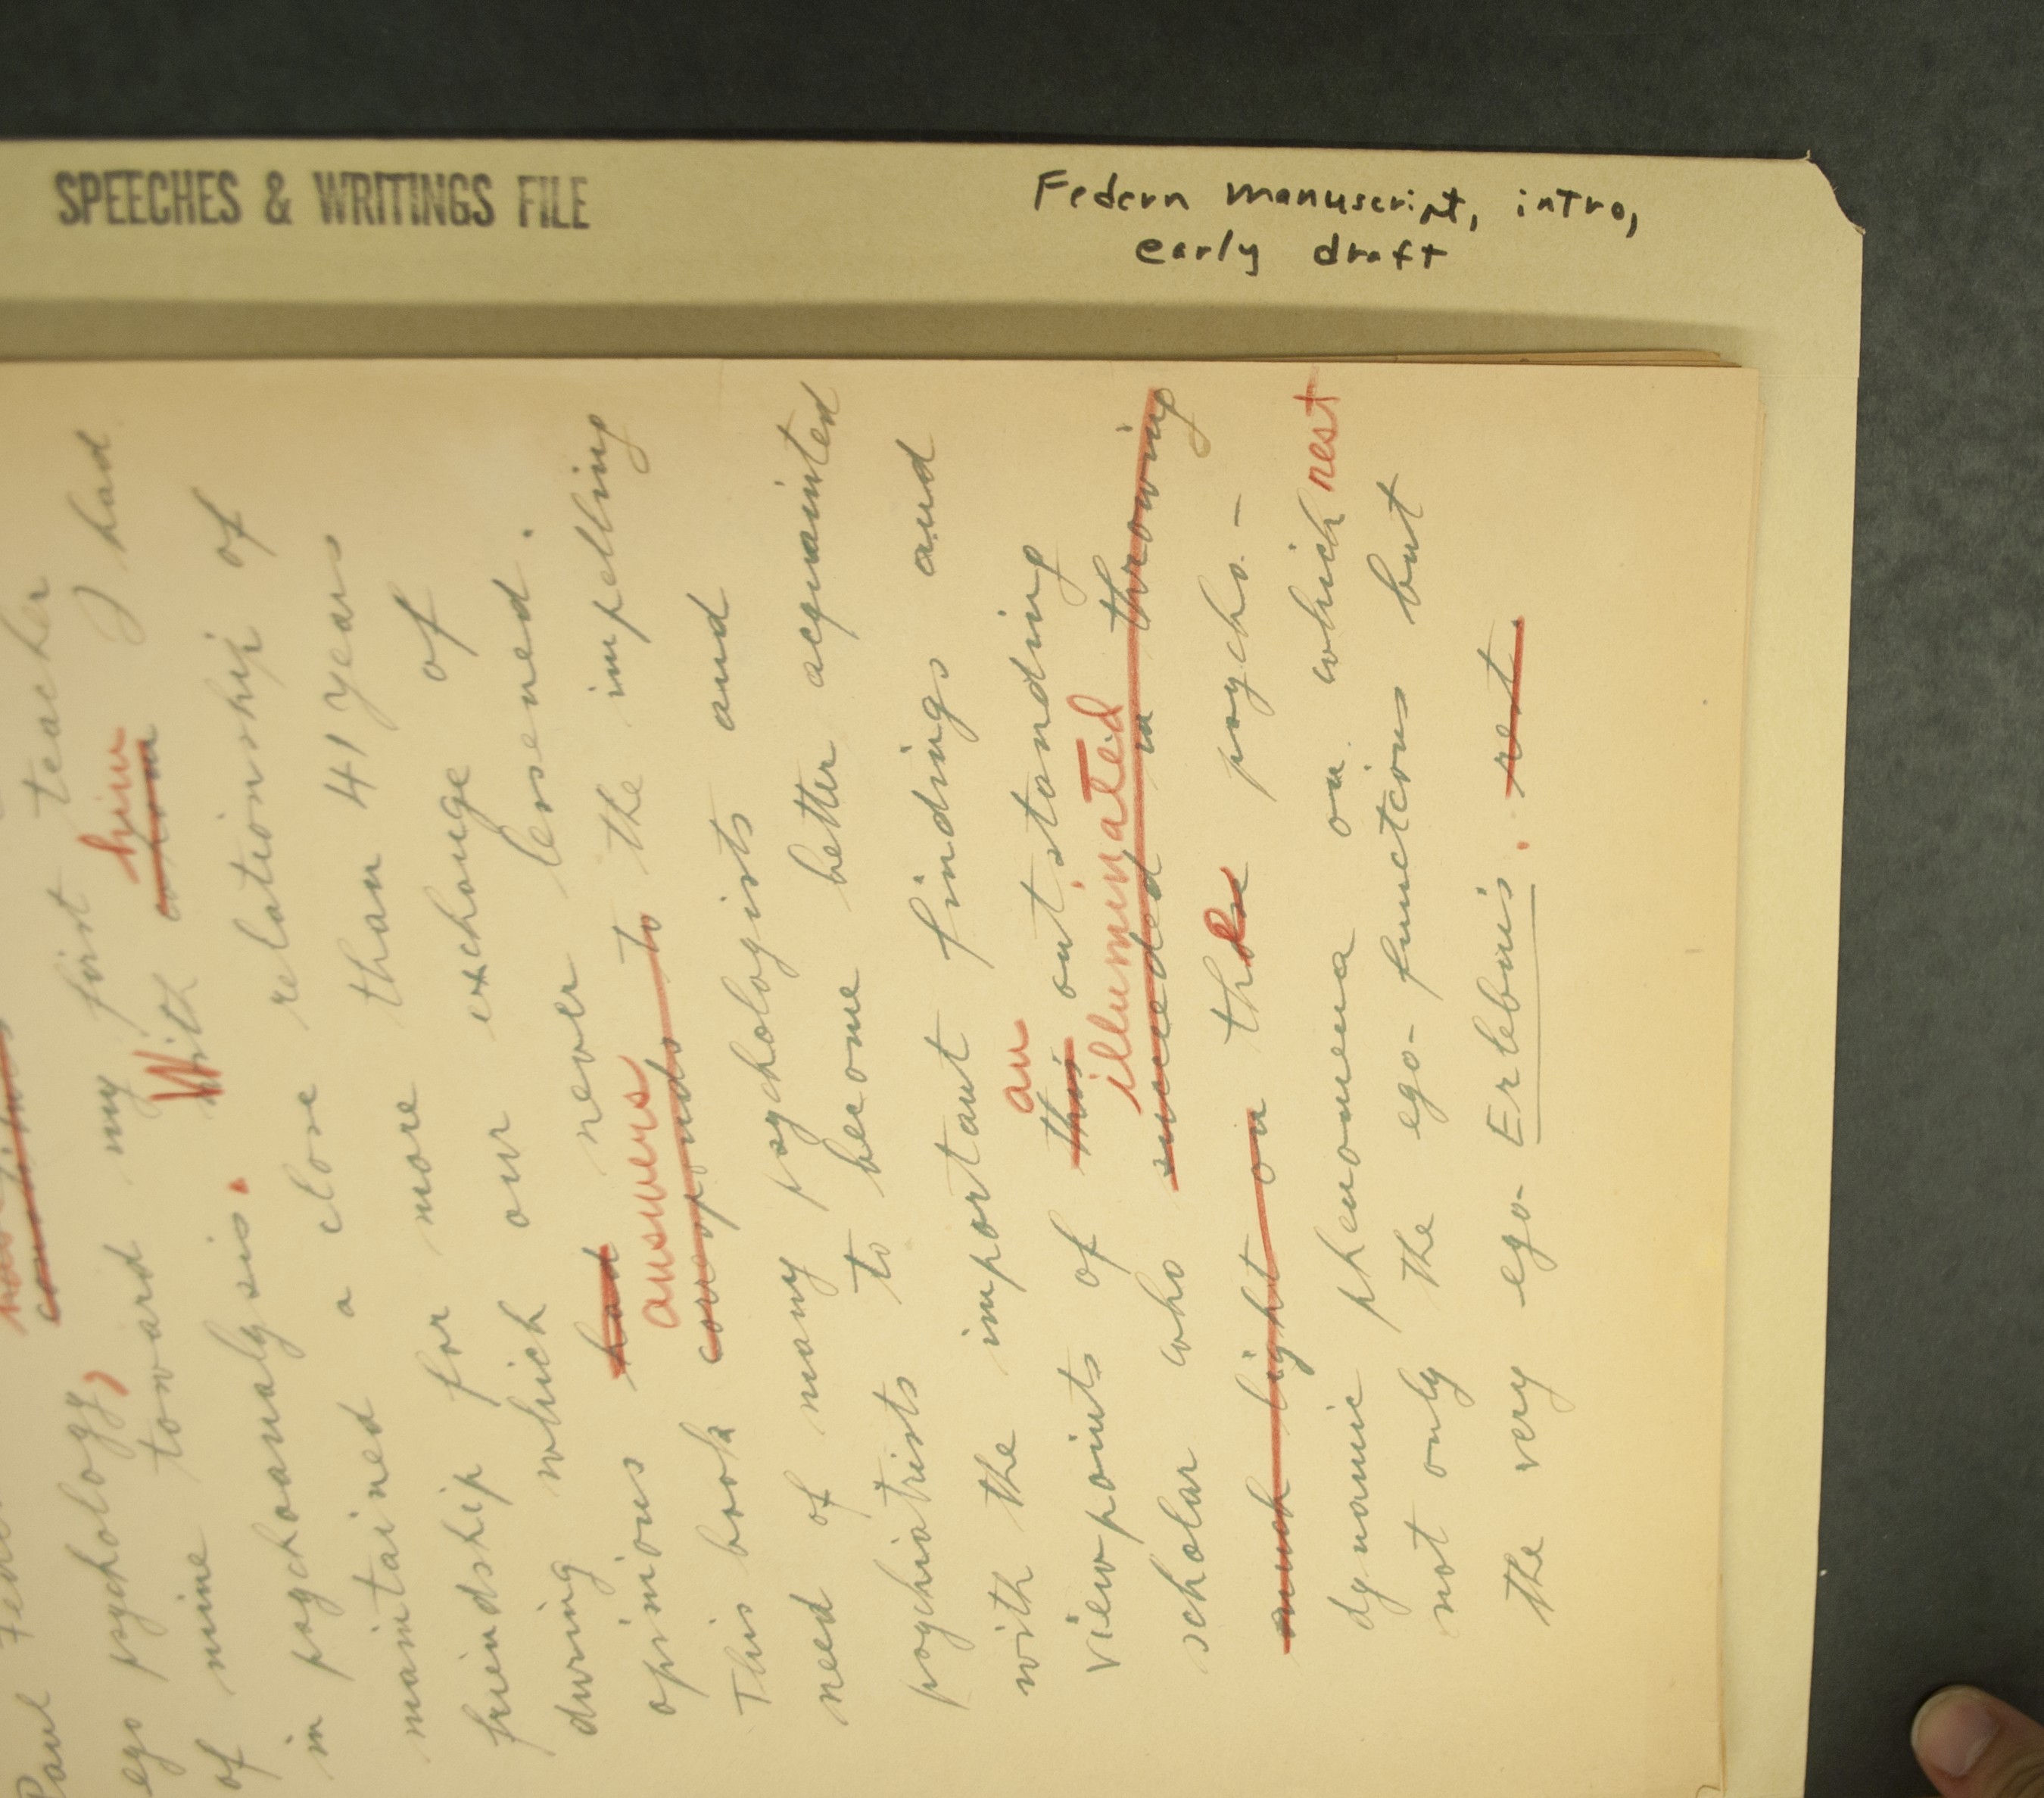 SPEECHES & WRITINGS FILE
Federn manuscript, intro,
early draft
Paul
ego psychology,
of mine toward my first teacher
in psychoanalysis. With whom him I had
maintained a close relationship of
friendship for more than 41 years
during which our exchange of
opinions had never lessened.
This book corresponds to answers the impelling
need of many psychologists and
psychiatrists to become better acquainted
with the important findings and
viewpoints of this an outstanding
scholar who succeeded in throwing illuminated
much light on the psycho-
dynamic phenomena on which rest
not only the ego-functions but
the very ego-Erlebnis. rest